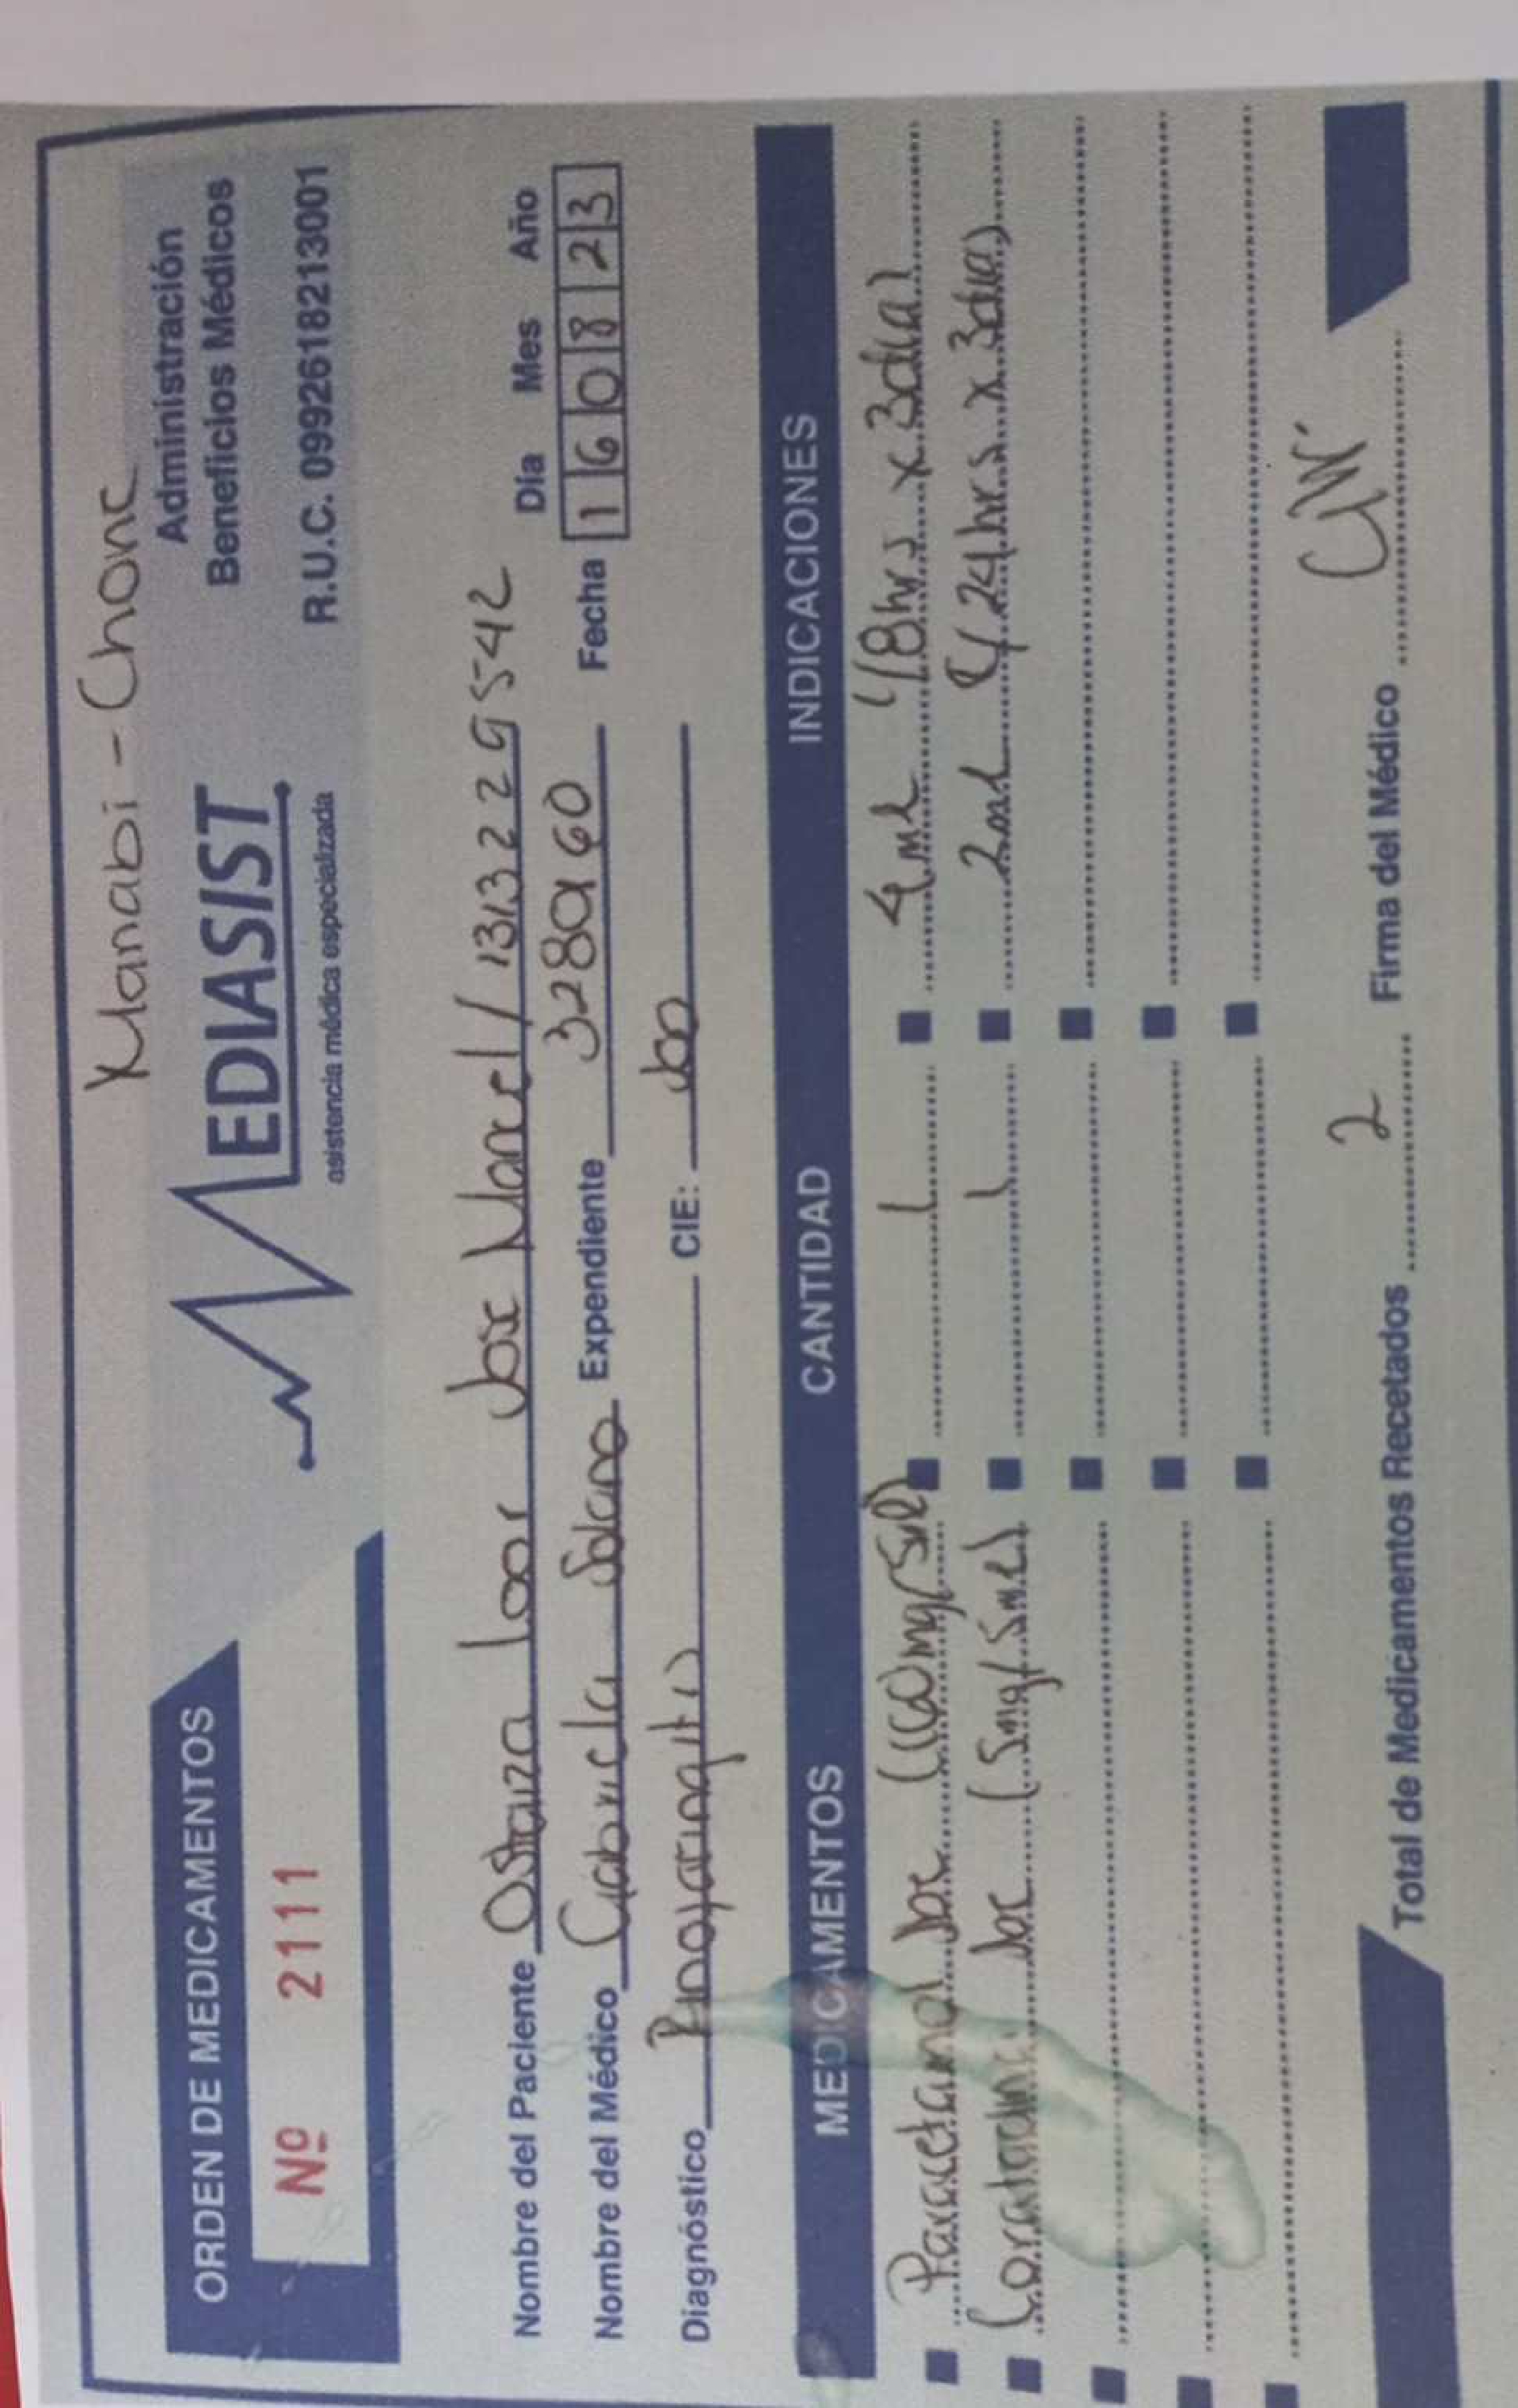 Manabi - Chone
ORDEN DE MEDICAMENTOS
Nº 2111
MEDIASIST
asistencia médica especializada
Administración
Beneficios Médicos
R.U.C. 0992618213001
Nombre del Paciente Ostaiza Loor Jose Manuel / 1313229542
Día Mes Año
Nombre del Médico Gabriela Solano Expendiente Fecha 16 08 23
Diagnóstico Rinofaringitis CIE: J00
MEDICAMENTOS CANTIDAD INDICACIONES
Paracetamol Jbe (160mg/5ml) 1 4ml c/8hrs x 3dias
Loratadina Jbe (5mg/5ml) 1 2ml c/24hrs x 3dias
Total de Medicamentos Recetados 2 Firma del Médico